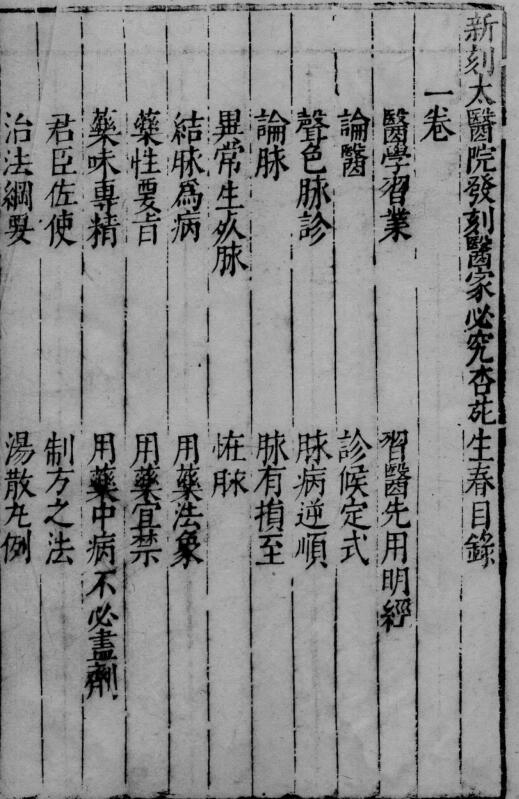 新刻太醫院發刻醫家必究杏苑生春目錄
一卷
醫學習業　習醫先用明經
論醫　診候定式
聲色脉診　脉病逆順
論脉　脉有損至
異常生死脉　怪脉
結脉爲病　用藥法象
藥性要旨　用藥宜禁
藥味專精　用藥中病不必盡劑
君臣佐使　制方之法
治法綱要　湯散丸例